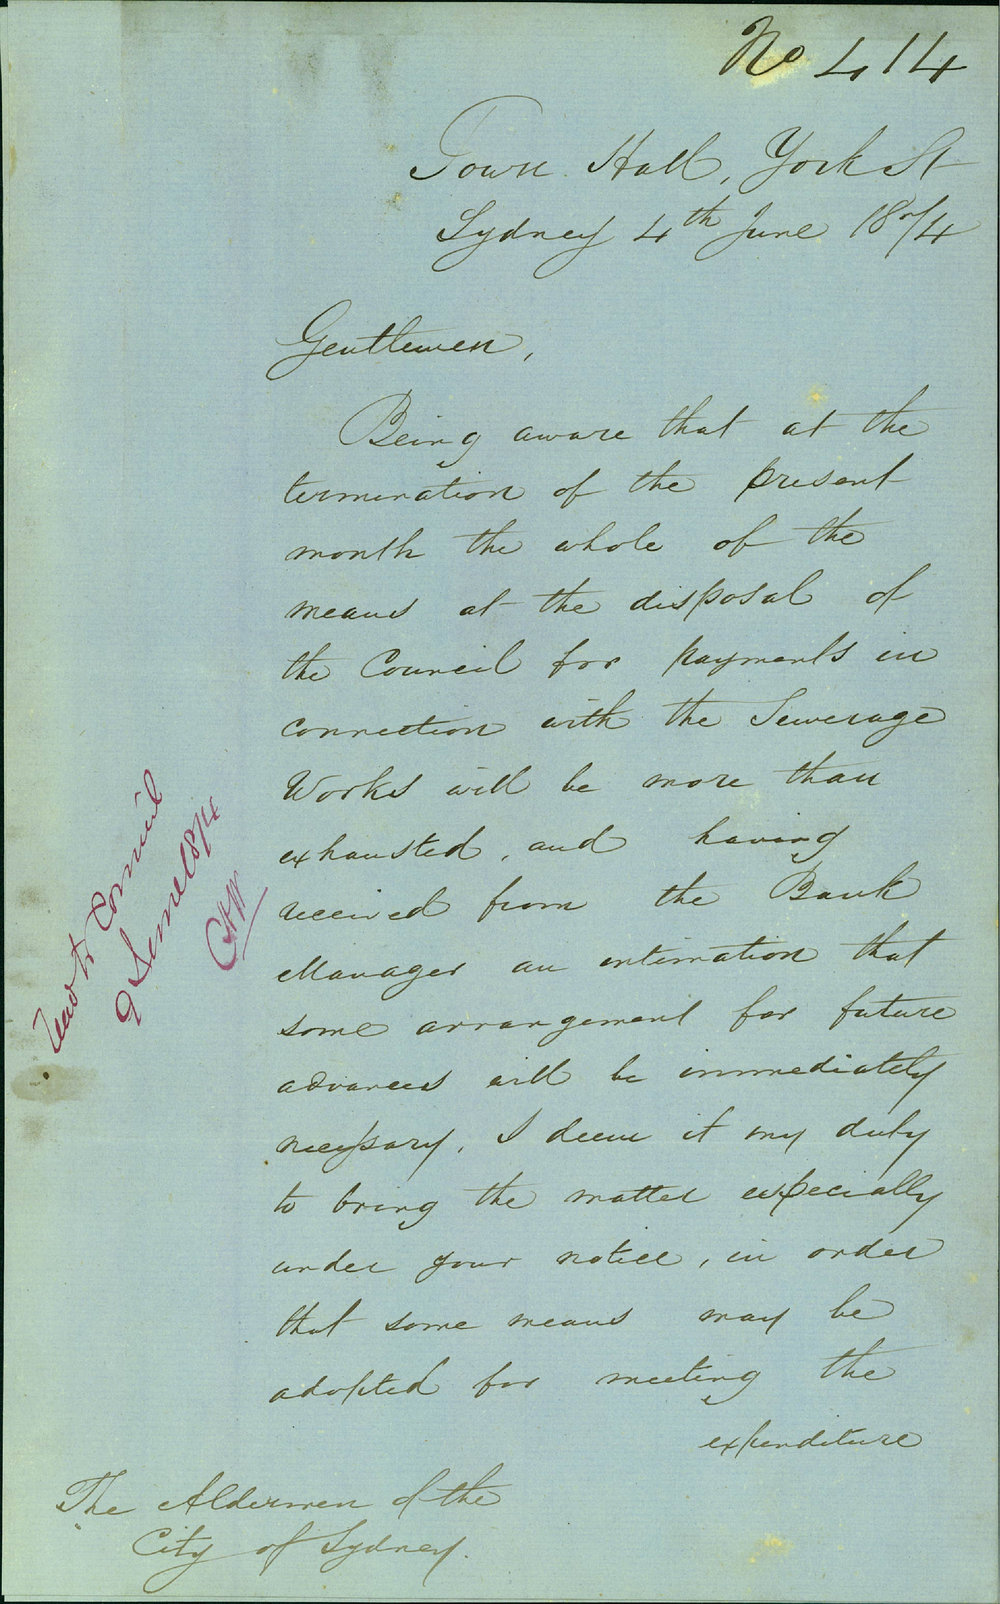 No 414
Town Hall, York St
Sydney 4th June 1874
Gentlemen,
Being aware that at the
termination of the present
month the whole of the
means at the disposal of
the Council for payments in
connection with the Sewerage
Works will be more than
exhausted, and having
received from the Bank
Manager an intimation that
some arrangement for future
advances will be immediately
necessary, I deem it my duty
to bring the matter especially
under your notice, in order
that some means may be
adopted for meeting the
expenditure
The Aldermen of the
City of Sydney.
Read to Council
9 June 1874
CHW